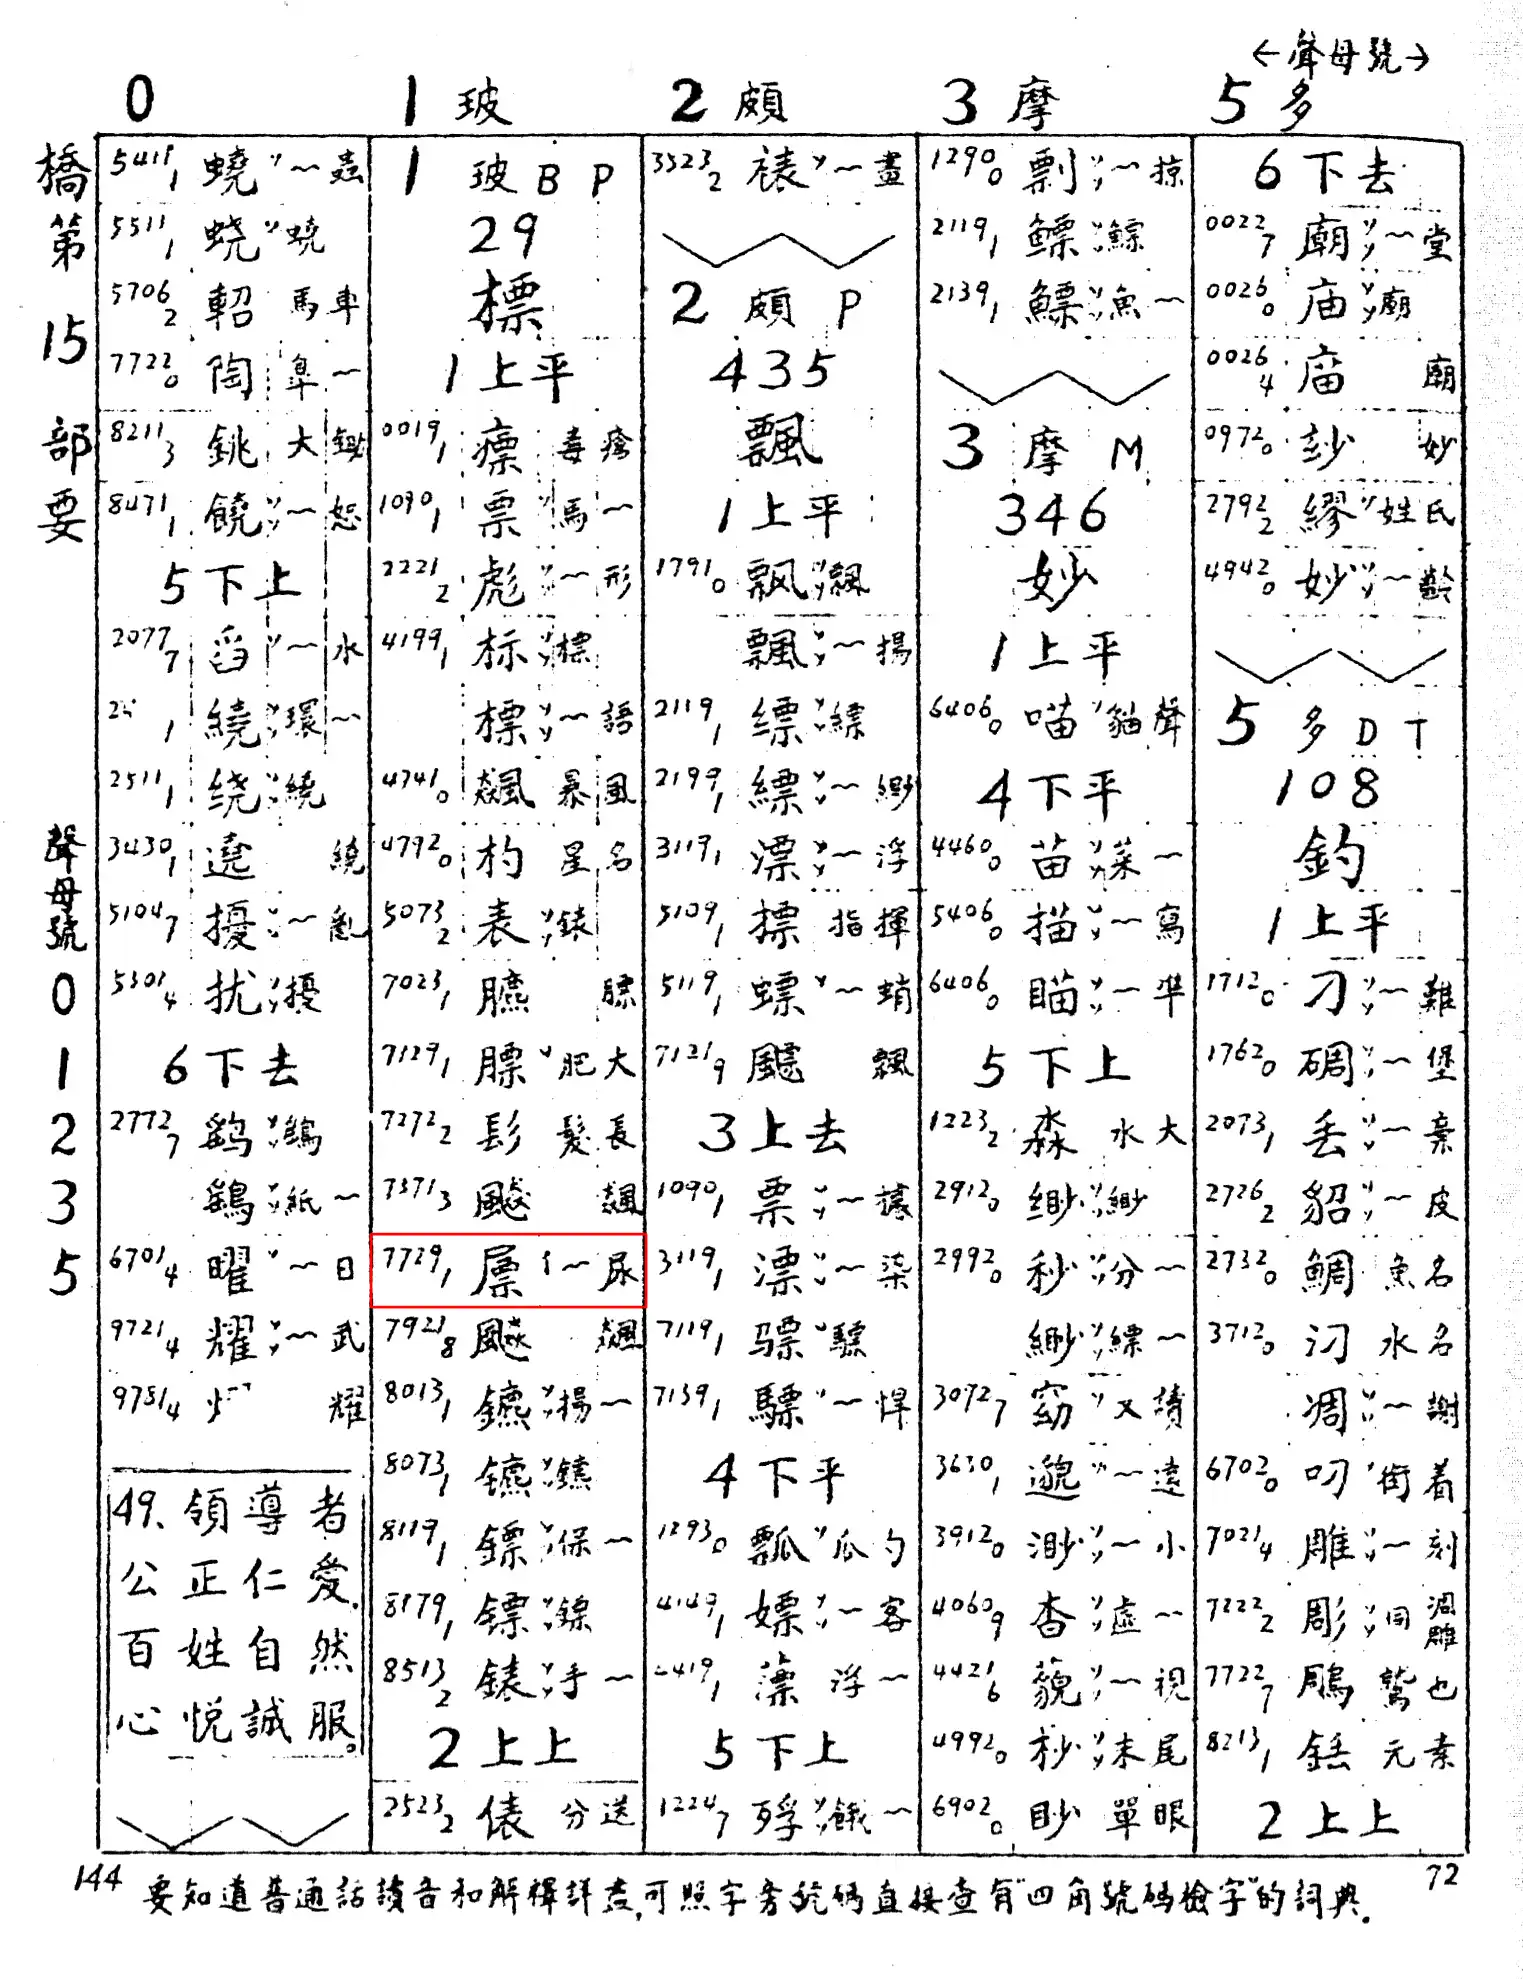 ←聲母號→
0 1玻 2頗 3摩 5多
橋第15部要
聲母號01235
5411₁ 蟯〃~蟲
5511₁ 蛲〃蟯
5706₂ 軺 馬車
7722₀ 陶 臯~
8211₃ 銚 大鋤
8471₁ 饒〃~恕
5下上
2077₇ 舀〃~水
繞〃環~
2511₁ 绕〃繞
3430₁ 遶 繞
5104₇ 擾〃~亂
5301₄ 扰〃擾
6下去
2772₇ 鹞〃鷂
鷂〃紙~
6701₄ 曜〃~日
9721₄ 耀〃~武
9781₄ 耀
49、領導者
公正仁愛,
百姓自然
心悅誠服。
1 玻 B P
29
標
1上平
0019₁ 瘭 毒瘡
1090₁ 票〃馬~
2221₂ 彪〃~形
4199₁ 标〃標
標〃~語
4741₀ 飆 暴風
4792₀ 杓 星名
5073₂ 表〃錶
7023₁ 臕 膘
7129₁ 膘〃肥大
7272₂ 髟 髮長
7371₃ 飇 飆
7729₁ 㞘~尿
7921₈ 飈 飆
8013₁ 鑣〃揚~
8073₁ 镳〃鑣
8119₁ 鏢〃保~
8179₁ 镖〃鏢
8513₂ 錶〃手~
2上上
2523₂ 俵 分送
3323₂ 裱〃~畫
2 頗 P
435
飄
1上平
1791₀ 飘〃飄
飄〃~揚
2119₁ 缥〃縹
2199₁ 縹〃~緲
3119₁ 漂〃~浮
5109₁ 摽 指揮
5119₁ 螵〃~蛸
7121₉ 飃 飄
3上去
1090₁ 票〃~據
3119₁ 漂〃~染
7119₁ 骠〃驃
7139₁ 驃〃~悍
4下平
1293₀ 瓢〃瓜勺
4149₁ 嫖〃~客
薸 浮~
5下上
1224₇ 殍〃餓~
1290₀ 剽〃~掠
2119₁ 鳔〃鰾
2139₁ 鰾〃魚~
3 摩 M
346
妙
1上平
6406₀ 喵〃貓聲
4下平
4460₀ 苗〃菜~
5406₀ 描〃~寫
6406₀ 瞄〃~準
5下上
1223₂ 淼 水大
2912₀ 缈〃緲
2992₀ 秒〃分~
緲〃縹~
3072₇ 窈〃又讀
3630₁ 邈〃~遠
3912₀ 渺〃~小
4060₉ 杳〃虛~
4421₆ 藐〃~視
4992₀ 杪〃末尾
6902₀ 眇 單眼
6下去
0022₇ 廟〃~堂
0026₀ 庙〃廟
0026₄ 庿 廟
0972₀ 玅 妙
2792₂ 繆〃姓氏
4942₀ 妙〃~齡
5 多 D T
108
釣
1上平
1712₀ 刁〃~難
1762₀ 碉〃~堡
2073₁ 丢〃~棄
2726₂ 貂〃~皮
2732₀ 鯛 魚名
3712₀ 汈 水名
凋〃~謝
6702₀ 叼〃銜着
7021₄ 雕〃~刻
7222₂ 彫〃同凋雕
7722₇ 鵰 鷲也
8213₁ 銩 元素
2上上
144 要知道普通話讀音和解釋詳意,可照字旁號碼直接查有“四角號碼檢字”的詞典. 72